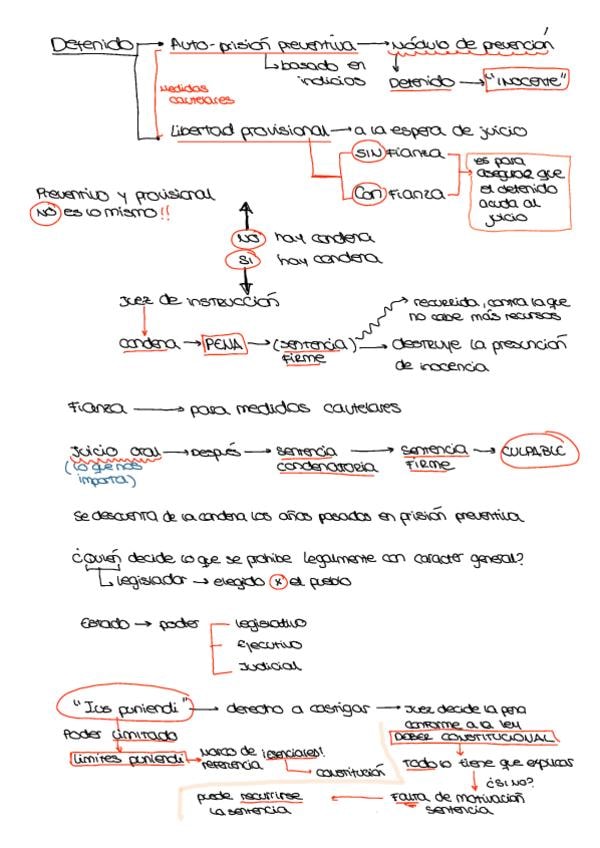 Detenido → Auto-prisión preventiva → Módulo de prevención
↳ basado en indicios
Detenido → "INOCENTE"
Medidas cautelares
Libertad provisional → a la espera de juicio
SIN Fianza
Con Fianza
es para asegurar que el detenido acuda al juicio
Preventivo y provisional
NO es lo mismo!!
NO hay condena
SI hay condena
Juez de INSTRUCCIÓN
condena → PENA → (sentencia) FIRME
recurrida, contra la que no cabe más recursos
destruye la presunción de inocencia
Fianza → para medidas cautelares
Juicio oral → Después → sentencia condenatoria → sentencia FIRME → CULPABLE
(lo que nos importa)
Se descuenta de la condena los años pasados en prisión preventiva
¿Quién decide lo que se prohibe legalmente con carácter general?
↳ legislador → elegido x el pueblo
Estado → poder
legislativo
Ejecutivo
Judicial
"Ius puniendi" → derecho a castigar → Juez decide la pena conforme a la ley
Poder limitado
DEBER CONSTITUCIONAL
Límites puniendi → Marco de referencia ¡esenciales!
→ constitución
Todo lo tiene que explicar
¿SI NO?
Falta de motivación sentencia
puede recurrirse la sentencia